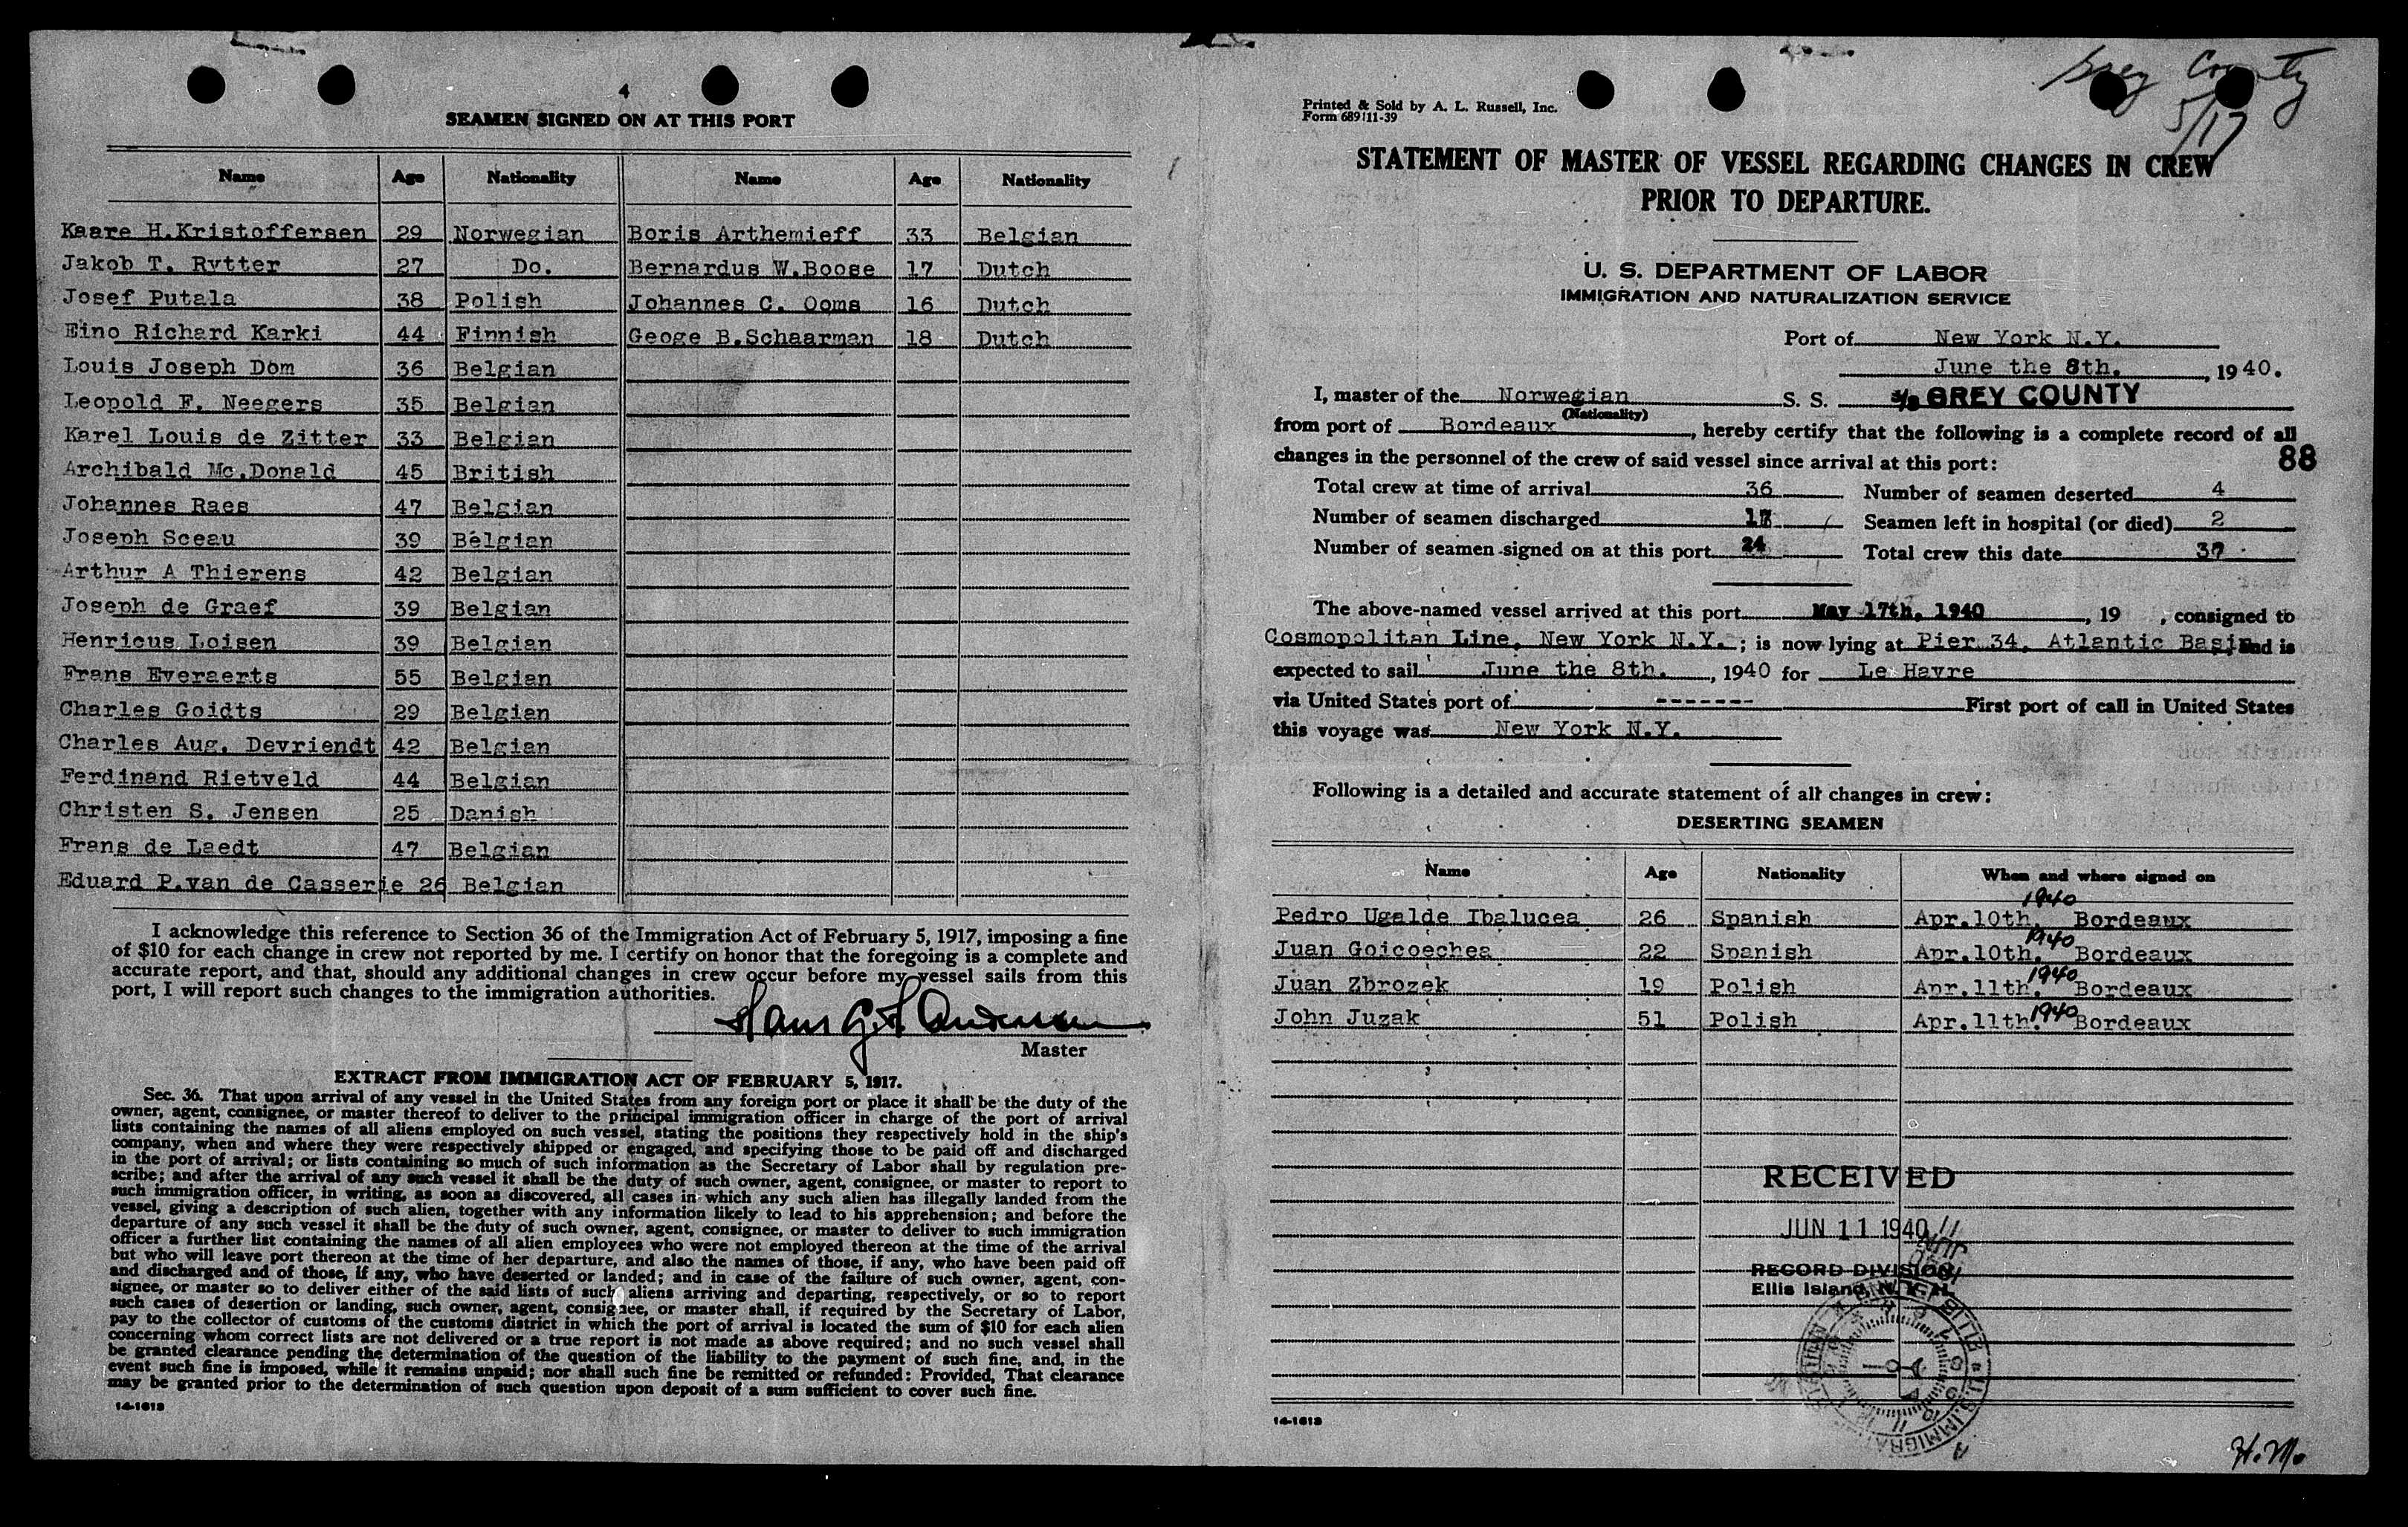 4
SEAMEN SIGNED ON AT THIS PORT
Name Age Nationality Name Age Nationality
Kaare H.Kristoffersen 29 Norwegian Boris Arthemieff 33 Belgian
Jakob T. Rytter 27 Do. Bernardus W.Boose 17 Dutch
Josef Putala 38 Polish Johannes C. Ooms 16 Dutch
Eino Richard Karki 44 Finnish Geoge B.Schaarman 18 Dutch
Louis Joseph Dom 36 Belgian
Leopold F. Neegers 35 Belgian
Karel Louis de Zitter 33 Belgian
Archibald Mc.Donald 45 British
Johannes Raes 47 Belgian
Joseph Sceau 39 Belgian
Arthur A Thierens 42 Belgian
Joseph de Graef 39 Belgian
Henricus Loisen 39 Belgian
Frans Everaerts 55 Belgian
Charles Goidts 29 Belgian
Charles Aug. Devriendt 42 Belgian
Ferdinand Rietveld 44 Belgian
Christen S. Jensen 25 Danish
Frans de Laedt 47 Belgian
Eduard P.van de Casserie 26 Belgian
I acknowledge this reference to Section 36 of the Immigration Act of February 5, 1917, imposing a fine
of $10 for each change in crew not reported by me. I certify on honor that the foregoing is a complete and
accurate report, and that, should any additional changes in crew occur before my vessel sails from this
port, I will report such changes to the immigration authorities.
Master
EXTRACT FROM IMMIGRATION ACT OF FEBRUARY 5, 1917.
Sec. 36. That upon arrival of any vessel in the United States from any foreign port or place it shall be the duty of the
owner, agent, consignee, or master thereof to deliver to the principal immigration officer in charge of the port of arrival
lists containing the names of all aliens employed on such vessel, stating the positions they respectively hold in the ship's
company, when and where they were respectively shipped or engaged, and specifying those to be paid off and discharged
in the port of arrival; or lists containing so much of such information as the Secretary of Labor shall by regulation pre-
scribe; and after the arrival of any such vessel it shall be the duty of such owner, agent, consignee, or master to report to
such immigration officer, in writing, as soon as discovered, all cases in which any such alien has illegally landed from the
vessel, giving a description of such alien, together with any information likely to lead to his apprehension; and before the
departure of any such vessel it shall be the duty of such owner, agent, consignee, or master to deliver to such immigration
officer a further list containing the names of all alien employees who were not employed thereon at the time of the arrival
but who will leave port thereon at the time of her departure, and also the names of those, if any, who have been paid off
and discharged and of those, if any, who have deserted or landed; and in case of the failure of such owner, agent, con-
signee, or master so to deliver either of the said lists of such aliens arriving and departing, respectively, or so to report
such cases of desertion or landing, such owner, agent, consignee, or master shall, if required by the Secretary of Labor,
pay to the collector of customs of the customs district in which the port of arrival is located the sum of $10 for each alien
concerning whom correct lists are not delivered or a true report is not made as above required; and no such vessel shall
be granted clearance pending the determination of the question of the liability to the payment of such fine, and, in the
event such fine is imposed, while it remains unpaid; nor shall such fine be remitted or refunded: Provided, That clearance
may be granted prior to the determination of such question upon deposit of a sum sufficient to cover such fine.
14-1613
Grey County
5/17
Printed & Sold by A. L. Russell, Inc.
Form 689 11-39
STATEMENT OF MASTER OF VESSEL REGARDING CHANGES IN CREW
PRIOR TO DEPARTURE.
U. S. DEPARTMENT OF LABOR
IMMIGRATION AND NATURALIZATION SERVICE
Port of New York N.Y.
June the 8th. , 1940.
I, master of the Norwegian S. S. S/S GREY COUNTY
(Nationality)
from port of Bordeaux , hereby certify that the following is a complete record of all
changes in the personnel of the crew of said vessel since arrival at this port:
88
Total crew at time of arrival 36 Number of seamen deserted 4
Number of seamen discharged Seamen left in hospital (or died) 2
Number of seamen signed on at this port 24 Total crew this date
The above-named vessel arrived at this port May 17th, 1940 , 19 , consigned to
Cosmopolitan Line, New York N.Y. ; is now lying at Pier 34, Atlantic Basin and is
expected to sail June the 8th. , 1940 for Le Havre
via United States port of ------- First port of call in United States
this voyage was New York N.Y.
Following is a detailed and accurate statement of all changes in crew:
DESERTING SEAMEN
Name Age Nationality When and where signed on
Pedro Ugalde Ibalucea 26 Spanish Apr.10th, 1940 Bordeaux
Juan Goicoechea 22 Spanish Apr.10th, 1940 Bordeaux
Juan Zbrozek 19 Polish Apr.11th, 1940 Bordeaux
John Juzak 51 Polish Apr.11th, 1940 Bordeaux
RECEIVED
JUN 11 1940
RECORD DIVISION
Ellis Island, N. Y. H.
14-1613
H.M.